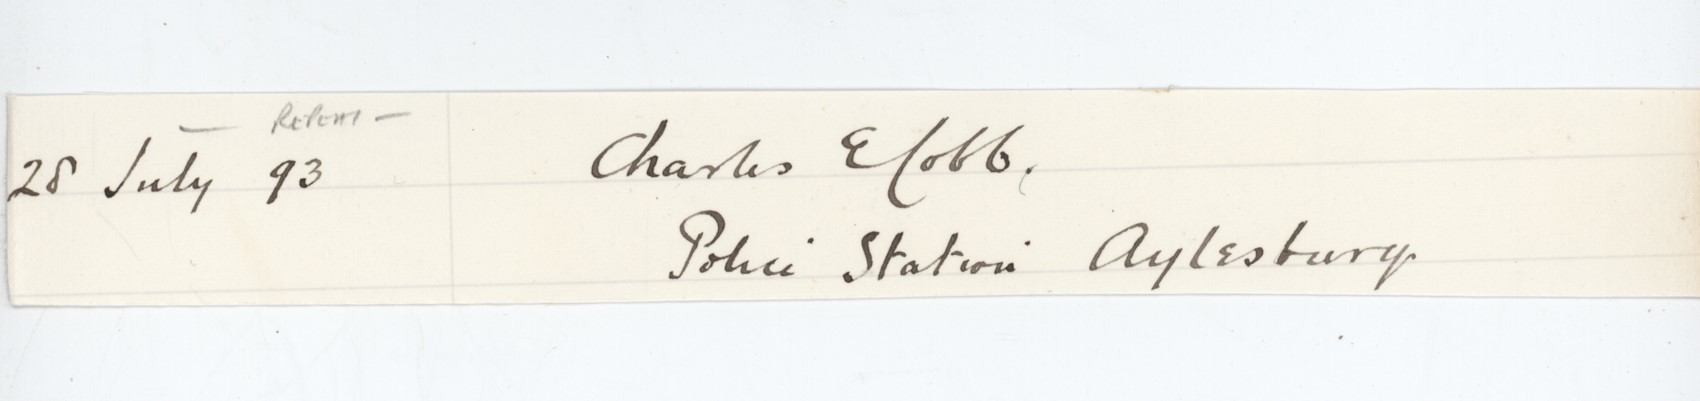 28 July 93 Charles E Cobb.
Police Station Aylesbury